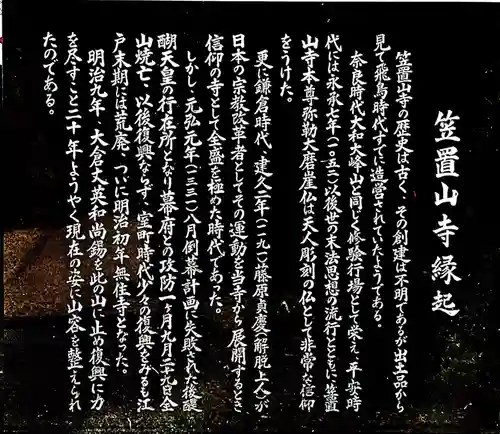 笠置山寺縁起
笠置山寺の歴史は古く、その創建は不明であるが出土品から
見て飛鳥時代すでに造営されていたようである。
奈良時代大和大峰山と同じく修験行場として栄え、平安時
代には永承七年(一〇五二)以後世の末法思想の流行とともに笠置
山寺本尊弥勒大磨崖仏は天人彫刻の仏として非常な信仰
をうけた。
更に鎌倉時代、建久二年(一一九一)藤原貞慶(解脱上人)が
日本の宗教改革者としてその運動を当寺から展開するとき
信仰の寺として全盛を極めた時代であった。
しかし、元弘元年(一三三一)八月倒幕計画に失敗された後醍
醐天皇の行在所となり幕府との攻防一ヶ月九月二十九日全
山焼亡、以後復興ならず、室町時代少々の復興をみるも江
戸末期には荒廃、ついに明治初年無住寺となった。
明治九年、大倉丈英和尚錫を此の山に止め復興に力
を尽すこと二十年ようやく現在の姿に山容を整えられ
たのである。